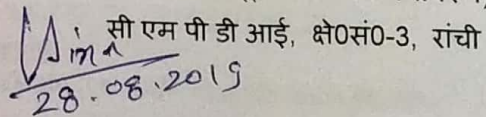 सी एम पी डी आई, क्षे0सं0-3, रांची
28.08.2019